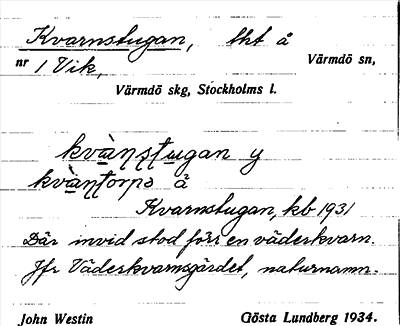 Kvarnstugan, tht å
nr 1 Vik,
Värmdö sn,
Värmdö skg, Stockholms l.
kvàṇṣṭugan y
kvàṇṭorpə å
Kvarnstugan, kb 1931
Där invid stod förr en väderkvarn.
Jfr Väderkvarnsgärdet, naturnamn.
John Westin
Gösta Lundberg 1934.